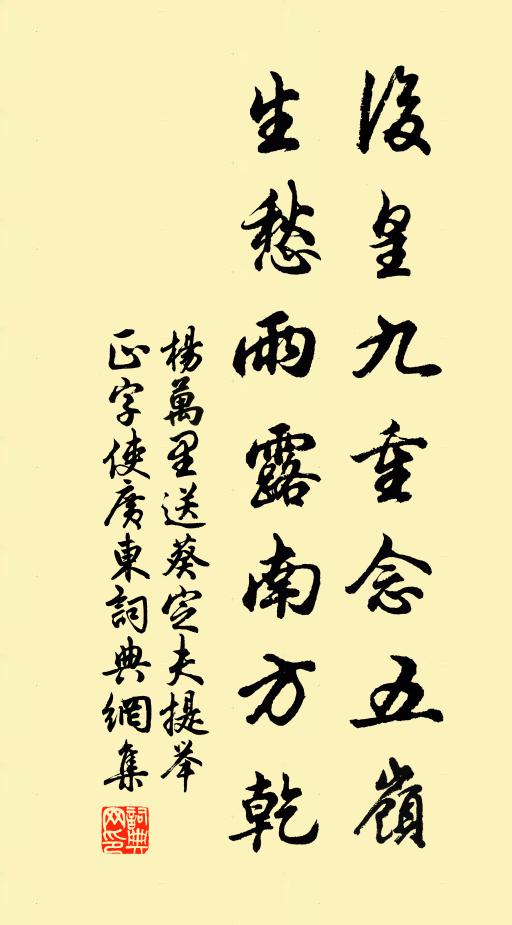 后皇九重念五嶺
生愁雨露南方乾
楊萬里送蔡定夫提举
正字使廣東詞典網集
詞典網印